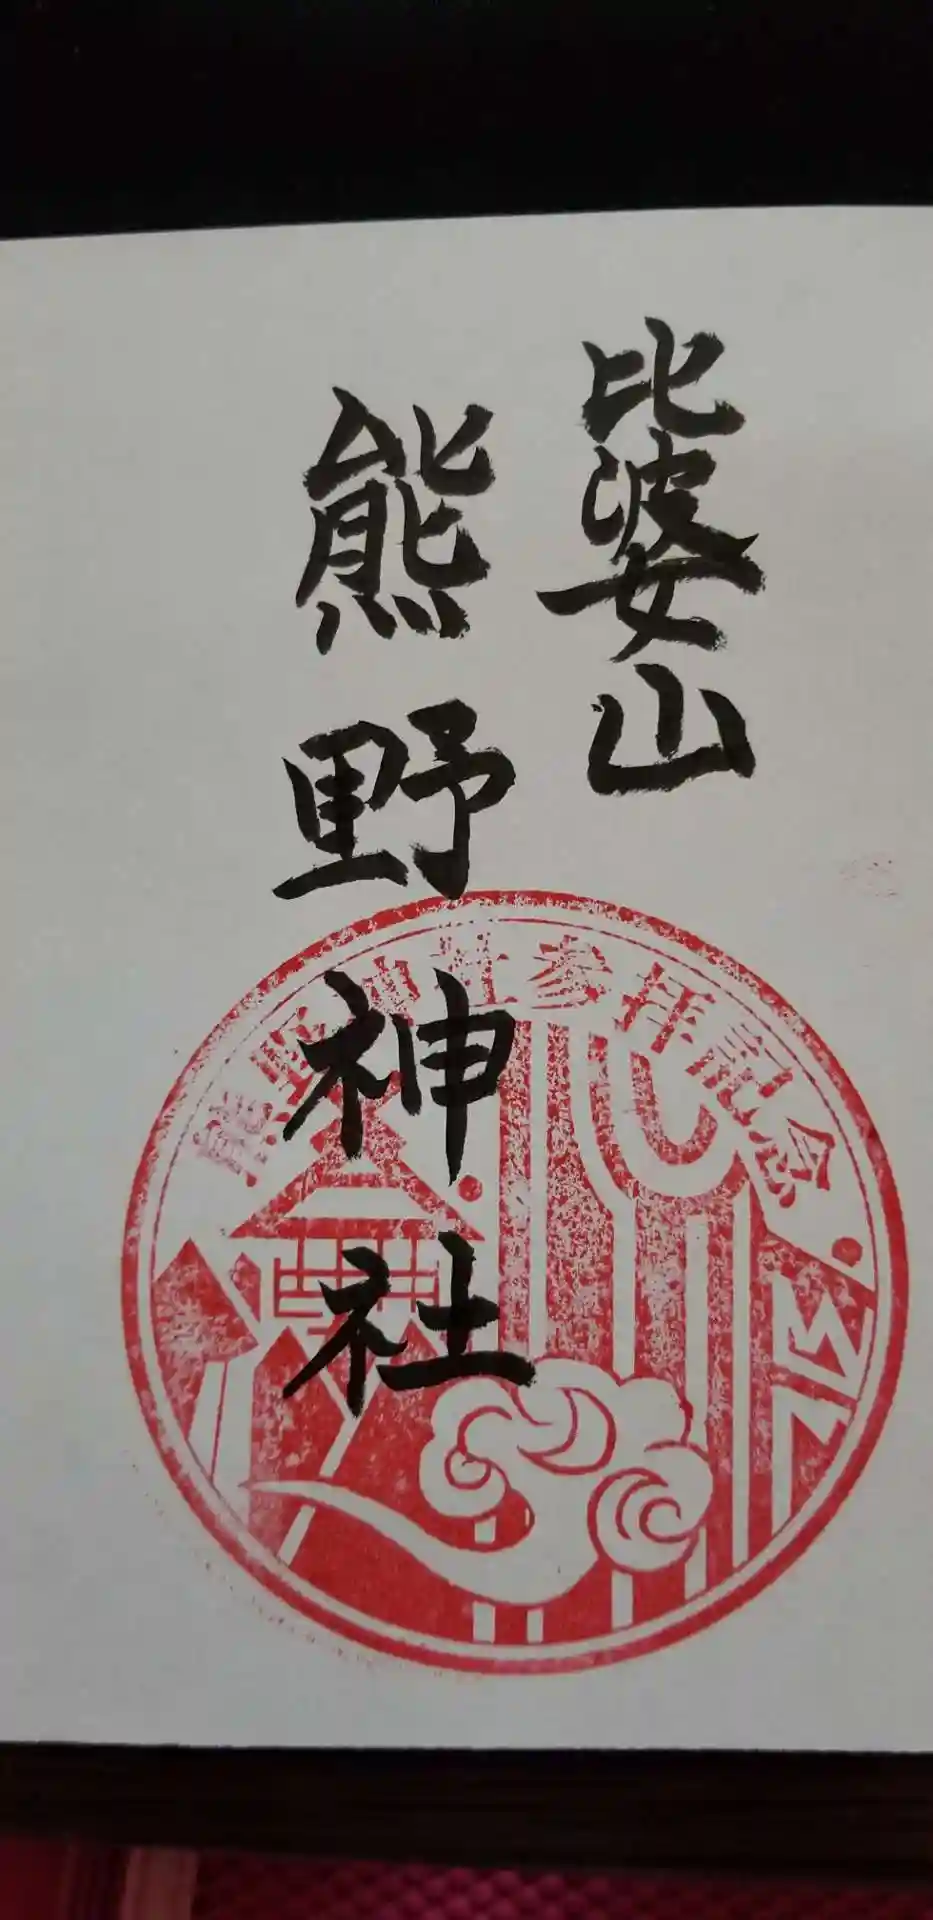 比婆山
熊野神社
熊野神社参拝記念